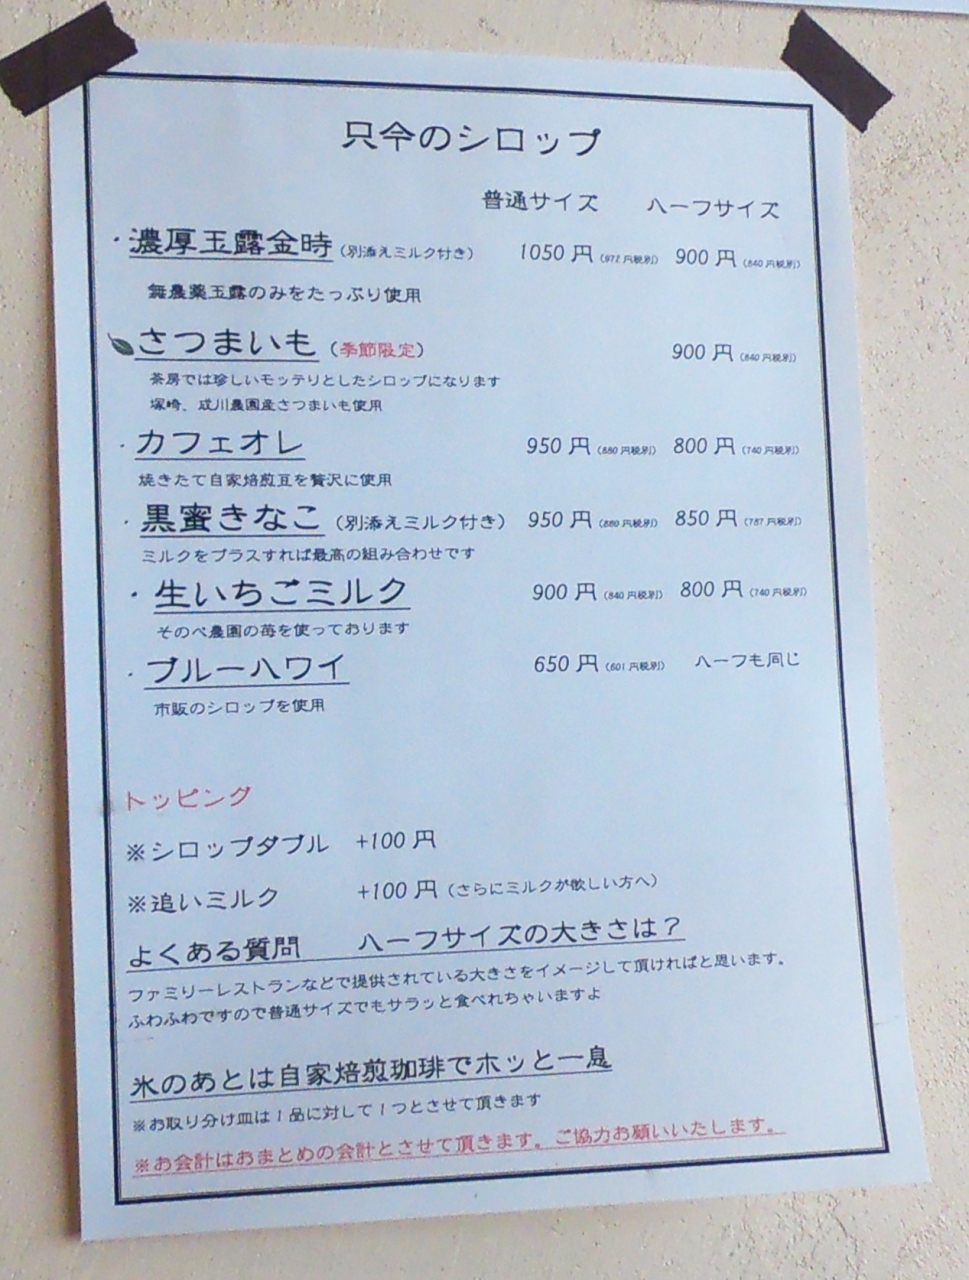 只今のシロップ
普通サイズ ハーフサイズ
・濃厚玉露金時(別添えミルク付き) 1050 円(972 円税別) 900 円(840 円税別)
無農薬玉露のみをたっぷり使用
さつまいも(季節限定) 900 円(840 円税別)
茶房では珍しいモッテリとしたシロップになります
塚崎、成川農園産さつまいも使用
・カフェオレ 950 円(880 円税別) 800 円(740 円税別)
焼きたて自家焙煎豆を贅沢に使用
・黒蜜きなこ(別添えミルク付き) 950 円(880 円税別) 850 円(787 円税別)
ミルクをプラスすれば最高の組み合わせです
・生いちごミルク 900 円(840 円税別) 800 円(740 円税別)
そのべ農園の苺を使っております
・ブルーハワイ 650 円(601 円税別) ハーフも同じ
市販のシロップを使用
トッピング
※シロップダブル +100 円
※追いミルク +100 円(さらにミルクが欲しい方へ)
よくある質問 ハーフサイズの大きさは?
ファミリーレストランなどで提供されている大きさをイメージして頂ければと思います。
ふわふわですので普通サイズでもサラッと食べれちゃいますよ
氷のあとは自家焙煎珈琲でホッと一息
※お取り分け皿は1品に対して1つとさせて頂きます
※お会計はおまとめの会計とさせて頂きます。ご協力お願いいたします。